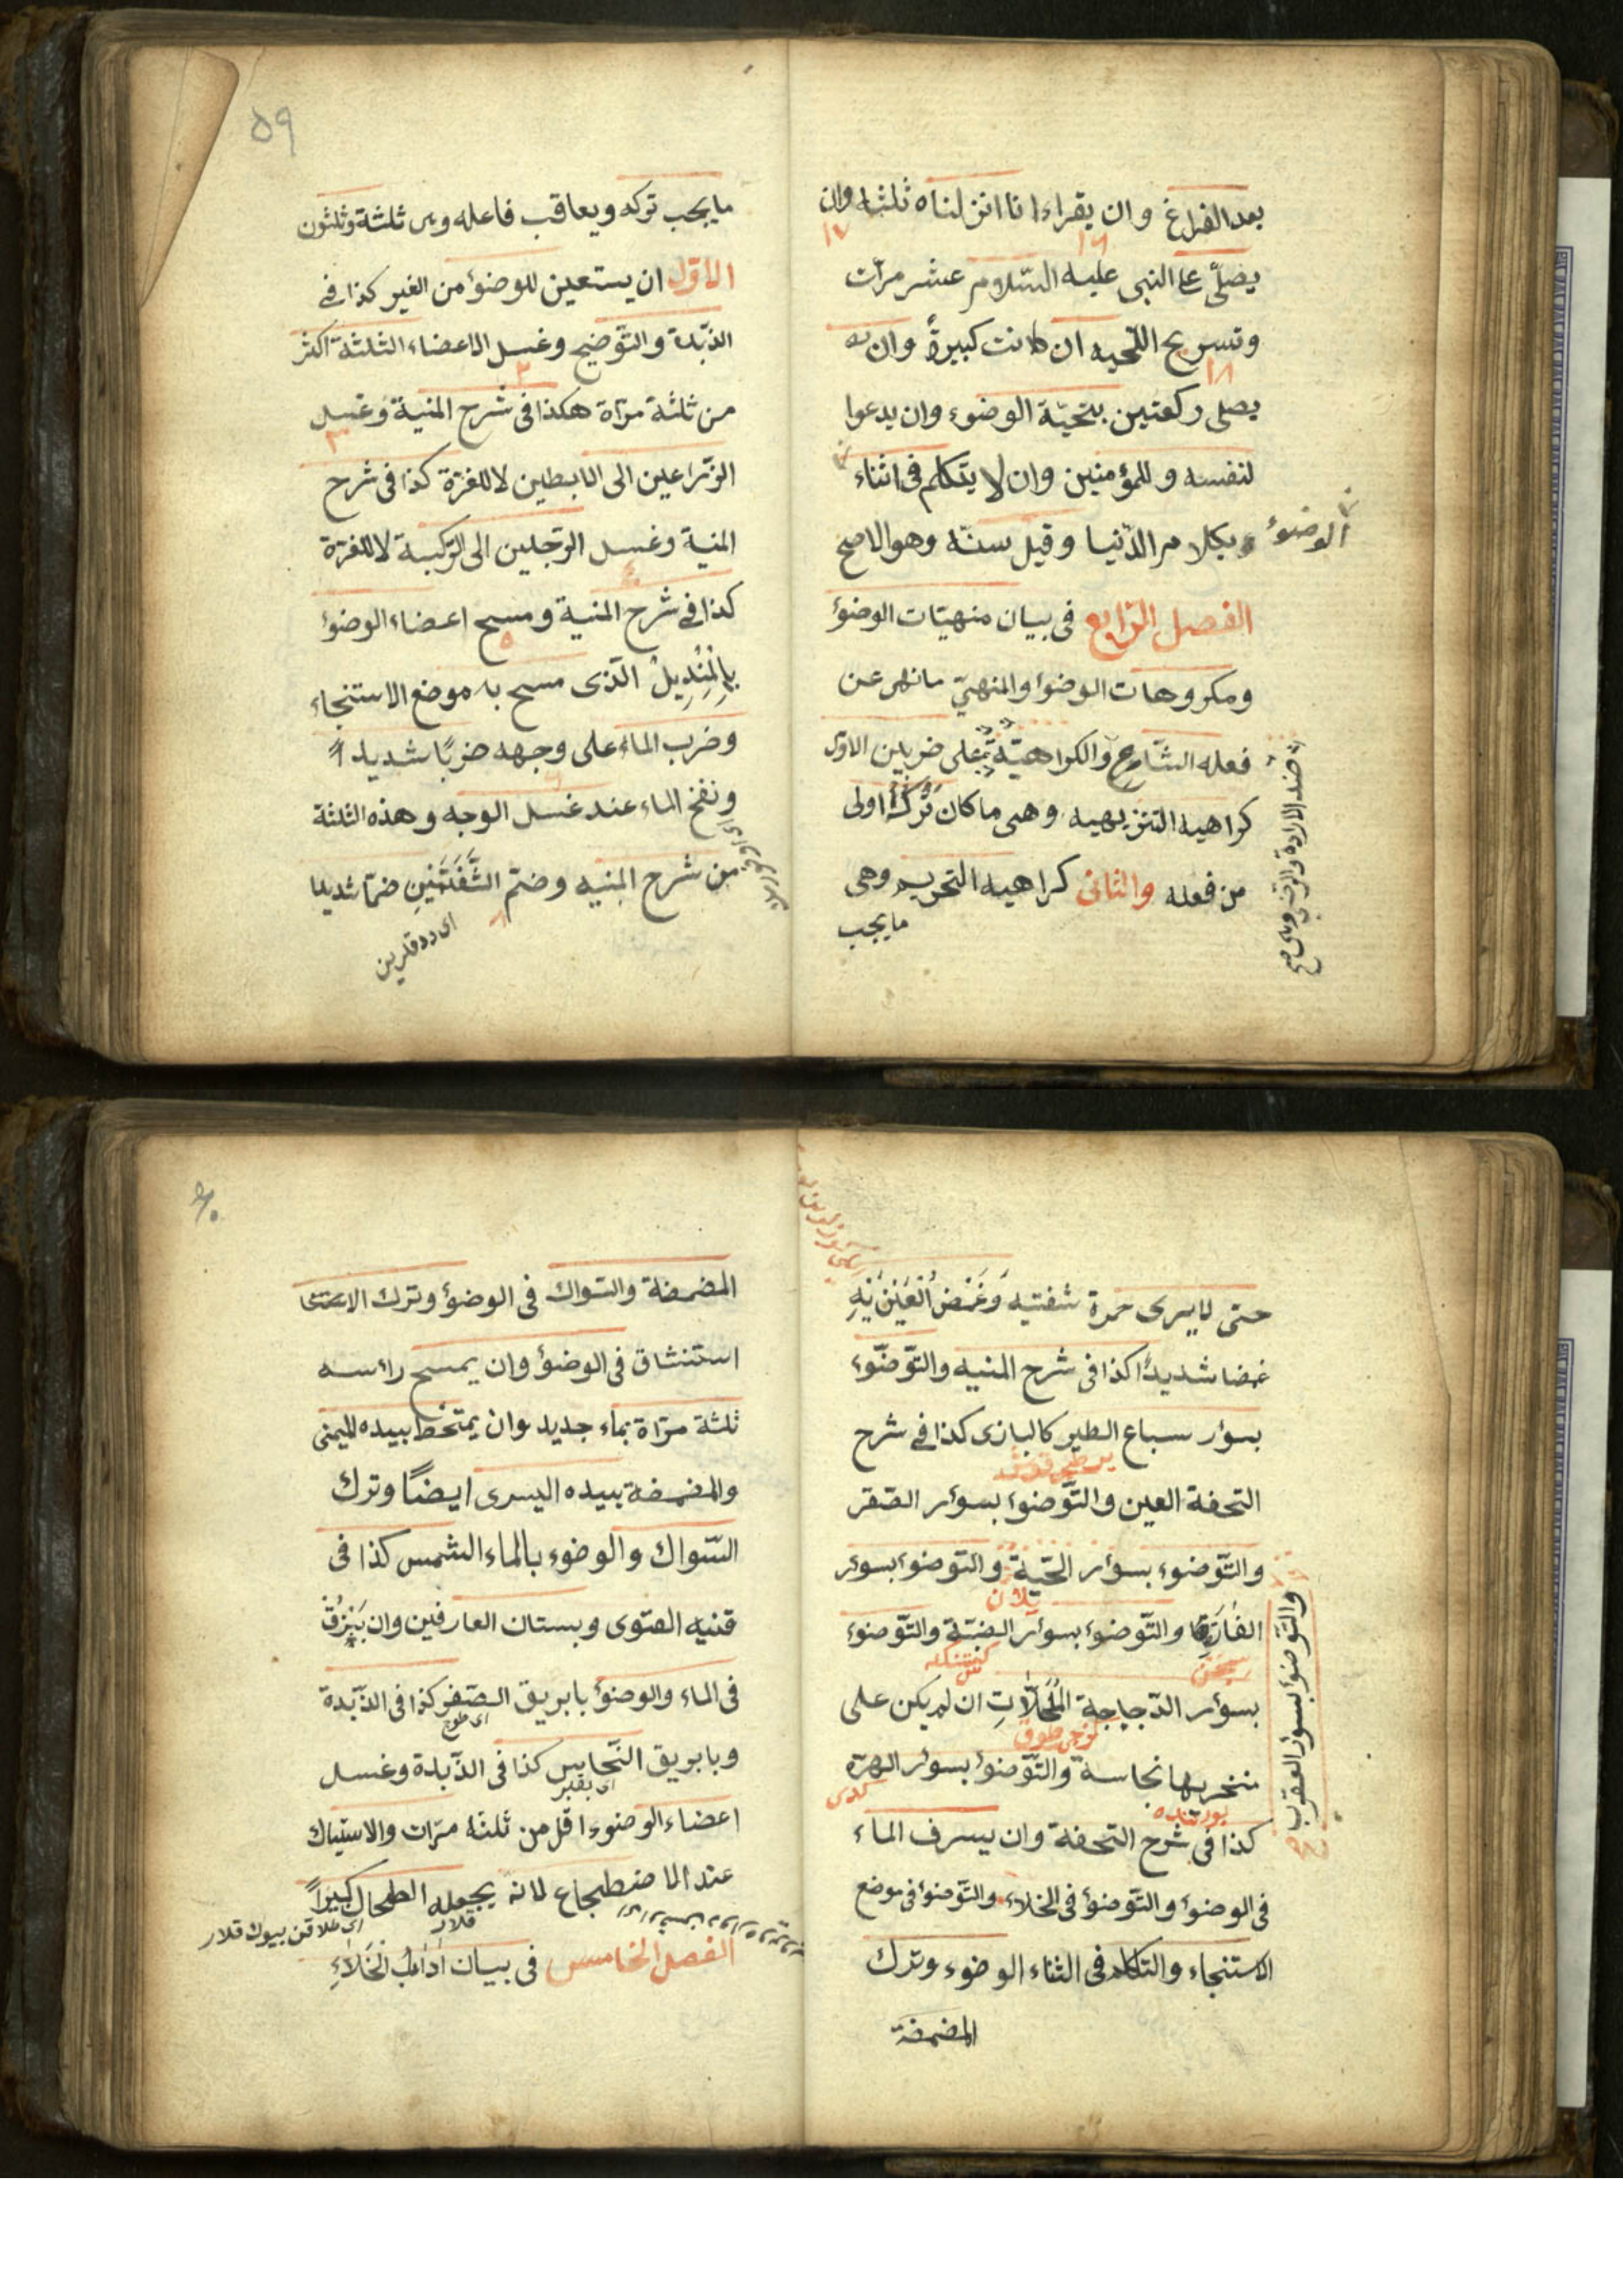 بعد الفراغ وان يقراء انا انزلناه ثلثه وان
١٦ ١٧
يصلّى على النبى عليه السّلام عشر مرّات
وتسريح اللّحيه ان كانت كبيرةً وان
١٨
يصلى ركعتين بتحيّة الوضوء وان يدعوا
لنفسه وللمؤمنين وان لا يتكلم فى اثناء
الوضوء بكلام الدّنيا وقيل سنّه وهو الاصح
الفصل الرّابع فى بيان منهيّات الوضوء
ومكروهات الوضوء والمنهىّ ما نهى عن
فعله الشّارع والكراهيّة على ضربين الاوّل
كراهيه التنزيهيه وهى ما كان تركُهُ اولى
من فعله والثانى كراهيه التحريم وهى
ما يجب
ضد الارادة والرّضى
٥٩
ما يجب تركه ويعاقب فاعله وهى ثلثة وثلثون
الاوّل ان يستعين للوضوء من الغير كذا فى
الذّبدة والتّوضيح وغسل الاعضاء الثلثة اكثر
٢
من ثلثة مرّاة هكذا فى شرح المنية وغسل
٣
الزّراعين الى الابطين لا للغرّة كذا فى شرح
المنية وغسل الرّجلين الى الرّكبة لا للغرّة
٤
كذا فى شرح المنية ومسح اعضاء الوضوء
٥
بِالْمِنْدِيلِ الّذى مسح به موضع الاستنجاء
وضرب الماء على وجهه ضربًا شديدًا
ونفخ الماء عند غسل الوجه وهذه الثلثة
من شرح المنيه وضمّ الشَّفَتَيْنِ ضمّا شديدا
٨
حتى لا يرى حمرة شفتيه وَغَمْضُ الْعَيْنَيْهِ
غمضا شديدًا كذا فى شرح المنيه والتّوضّوء
بسؤر سباع الطير كالبازى كذا فى شرح
التحفة العين والتّوضوء بسوءر الصّقر
والتّوضوء بسوءر الحيّة والتوضوء بسوءر
يلان
الفأرة والتّوضوء بسوءر الضبّة والتّوضوء
والتّوضوء بسوءر العقرب
سچان
بسوءر الدّجاجة الْمُخَلَّاتِ ان لم يكن على
منخريها نجاسة والتّوضوء بسوءر الهرّة
كدى
كذا فى شرح التحفة وان يسرف الماء
فى الوضوء والتّوضوء فى الخلاء والتّوضوء فى موضع
الاستنجاء والتكلم فى اثناء الوضوء وترك
المضمضة
٦٠
المضمضة والسّواك فى الوضوء وترك الا
استنشاق فى الوضوء وان يمسح رائسه
ثلثة مرّاة بماء جديد وان يمتخط بيده اليمنى
والمضمضة بيده اليسرى ايضًا وترك
السّواك والوضوء بالماء الشمس كذا فى
قنيه الفتوى وبستان العارفين وان يَبْزُقَ
فى الماء والوضوء بابريق الصّفر كذا فى الذّبدة
اى طوج
وبابريق النّحاس كذا فى الذّبدة وغسل
اى بقر
اعضاء الوضوء اقل من ثلثه مرّات والاستياك
عند الاضطجاع لانه يجعله الطحال كبيراً
قلار
اى طلاقن بيوك قلار
الفصل الخامس فى بيان اداب الْخَلَاءِ